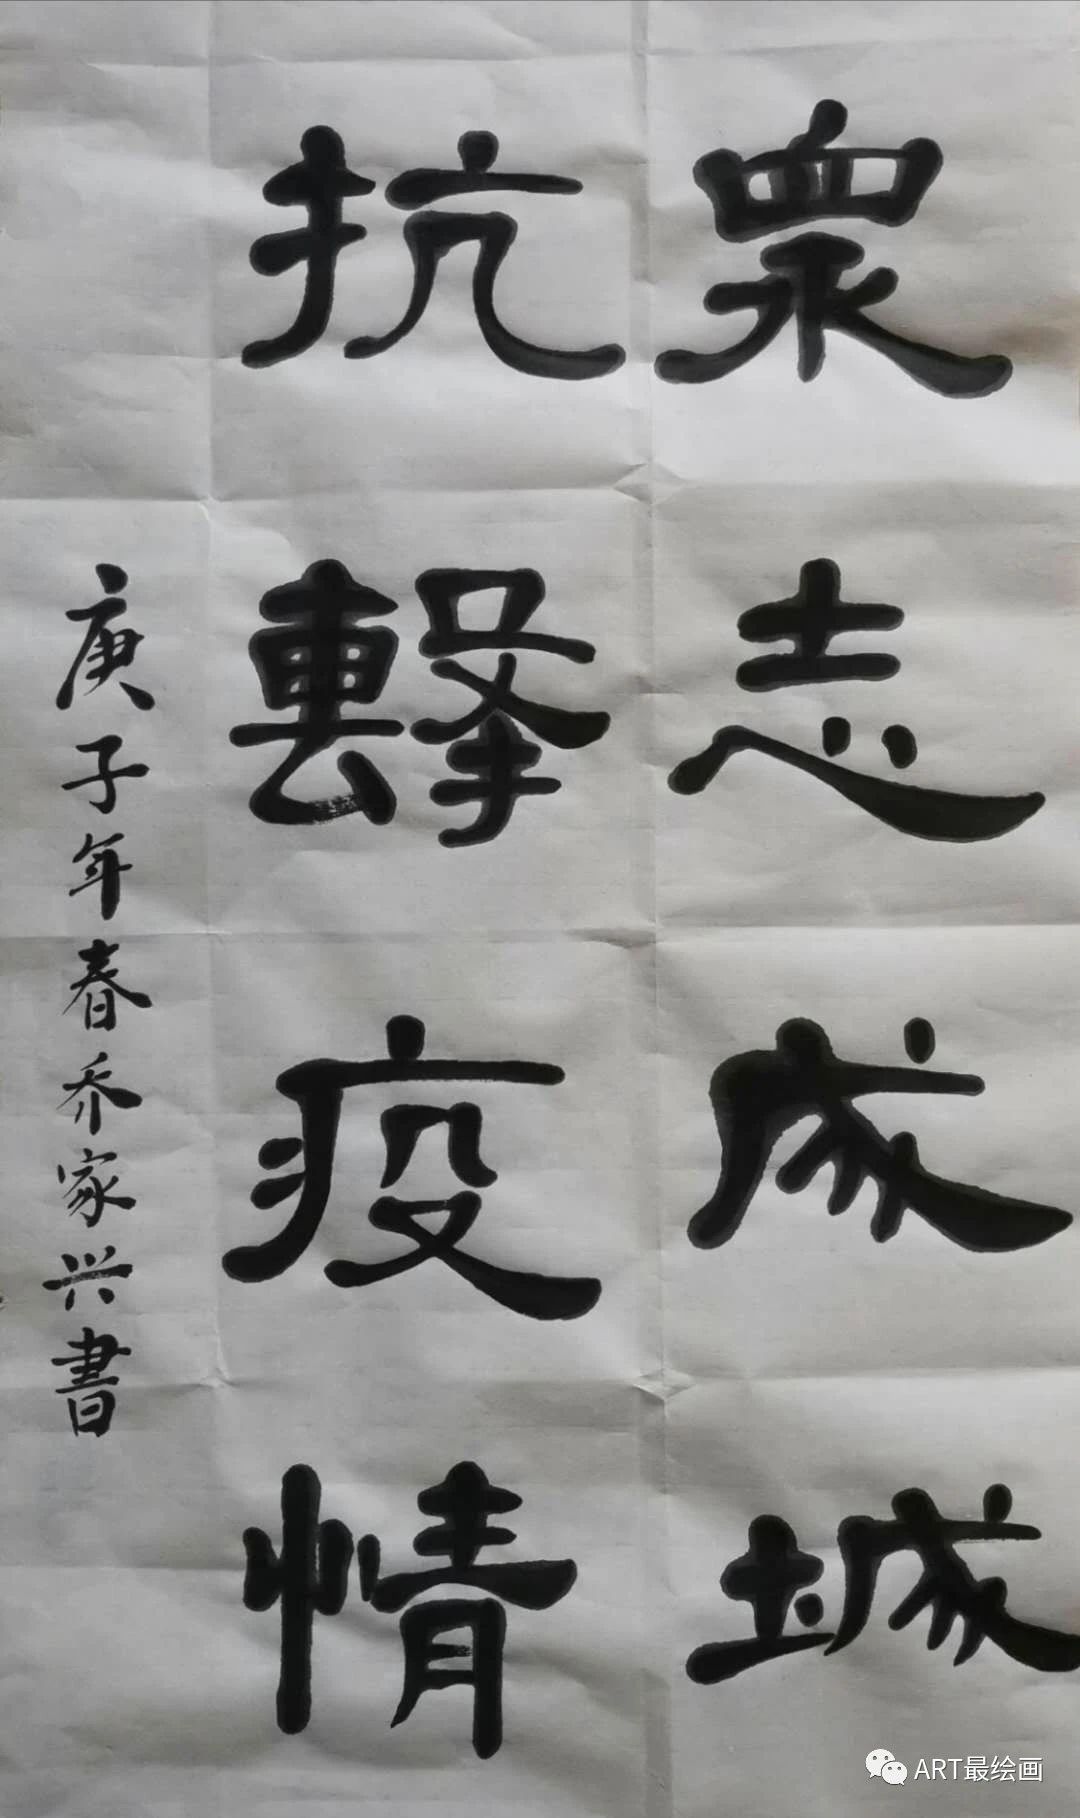 眾志成城
抗擊疫情
庚子年春乔家兴書
ART最绘画